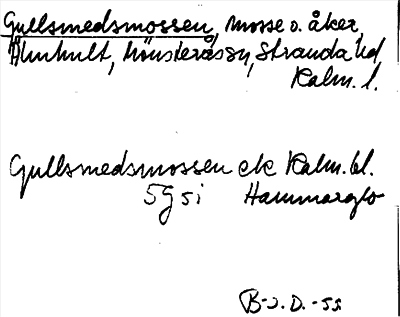 Gullsmedsmossen, mosse o. åker,
Älmhult, Mönsterås sn, Stranda hd
Kalm. l.
Gullsmedsmossen ek Kalm. bl.
5G si Hammarglo
B-J. D. -55